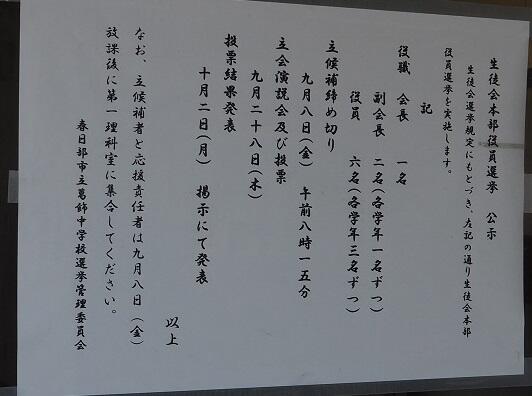 生徒会本部役員選挙　公示
生徒会選挙規定にもとづき、左記の通り生徒会本部
役員選挙を実施します。
記
役職　会長　一名
副会長　二名(各学年一名ずつ)
役員　六名(各学年三名ずつ)
立候補締め切り
九月八日(金)　午前八時一五分
立会演説会及び投票
九月二十八日(木)
投票結果発表
十月二日(月)　掲示にて発表
以上
なお、立候補者と応援責任者は九月八日(金)
放課後に第一理科室に集合してください。
春日部市立葛飾中学校選挙管理委員会